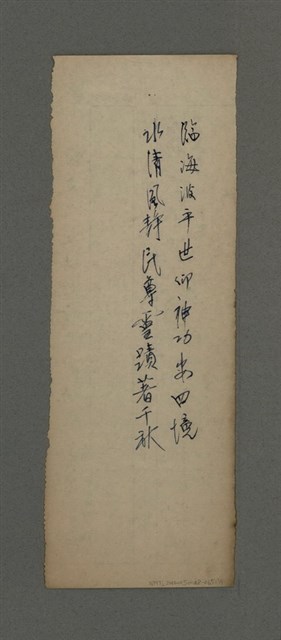 臨海波平世仰神功安四境
水清風靜民尊靈蹟著千秋